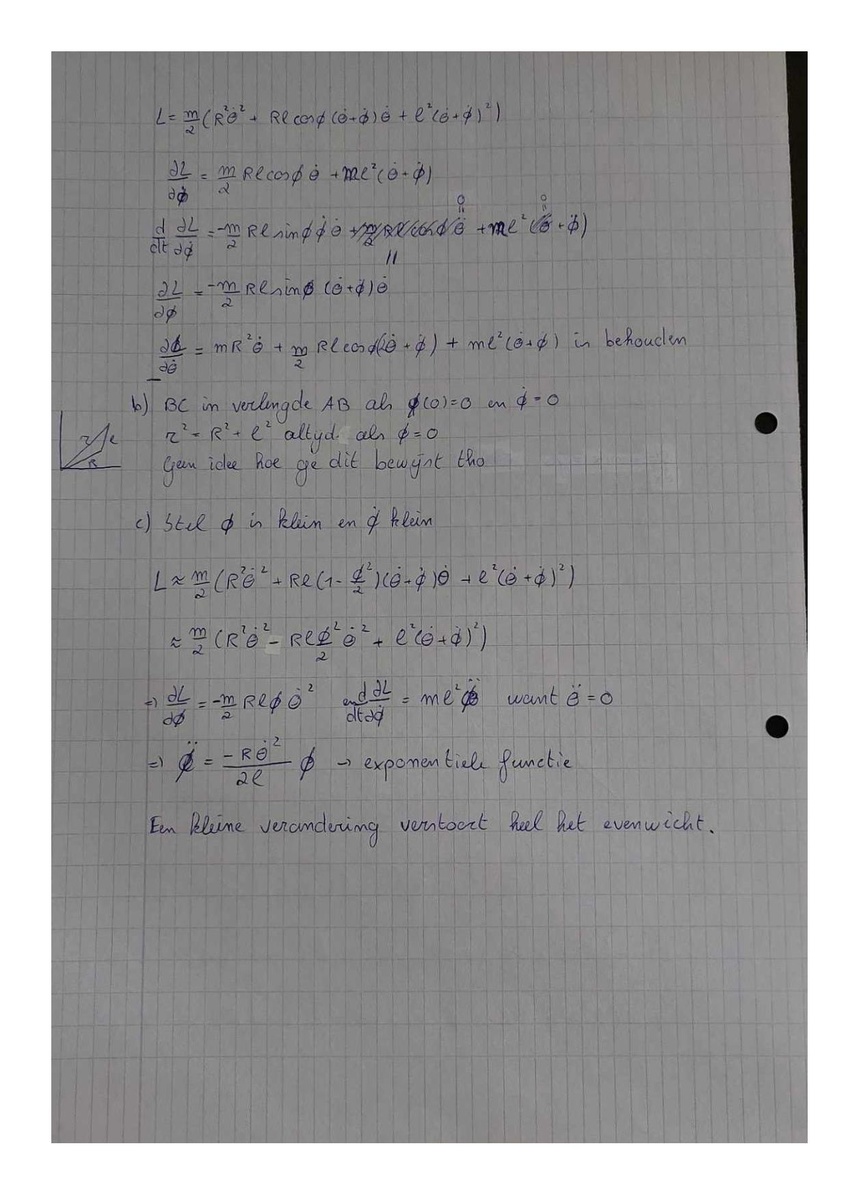 L = m/2 (R²θ̇² + Rl cosϕ (θ̇+ϕ̇)θ̇ + l²(θ̇+ϕ̇)²)
∂L/∂ϕ̇ = m/2 Rl cosϕ θ̇ + ml²(θ̇+ϕ̇)
d/dt ∂L/∂ϕ̇ = -m/2 Rl sinϕ ϕ̇ θ̇ + m/2 Rl cosϕ θ̈ + ml²(θ̈+ϕ̈)
∂L/∂ϕ = -m/2 Rl sinϕ (θ̇+ϕ̇)θ̇
∂L/∂θ̇ = mR²θ̇ + m/2 Rl cosϕ(2θ̇+ϕ̇) + ml²(θ̇+ϕ̇) is behouden
b) BC in verlengde AB als ϕ(0)=0 en ϕ̇=0
r² = R² + l² altyd als ϕ̇=0
Geen idee hoe ge dit bewijst tho
r l R
c) Stel ϕ is klein en ϕ̇ klein
L ≈ m/2 (R²θ̇² + Rl(1-ϕ²/2)(θ̇+ϕ̇)θ̇ + l²(θ̇+ϕ̇)²)
≈ m/2 (R²θ̇² - Rlϕ²/2 θ̇² + l²(θ̇+ϕ̇)²)
=> ∂L/∂ϕ = -m/2 Rlϕ θ̇² en d/dt ∂L/∂ϕ̇ = ml²ϕ̈ want θ̈=0
=> ϕ̈ = -Rθ̇²/2l ϕ → exponentiele functie
Een kleine verandering verstoort heel het evenwicht.